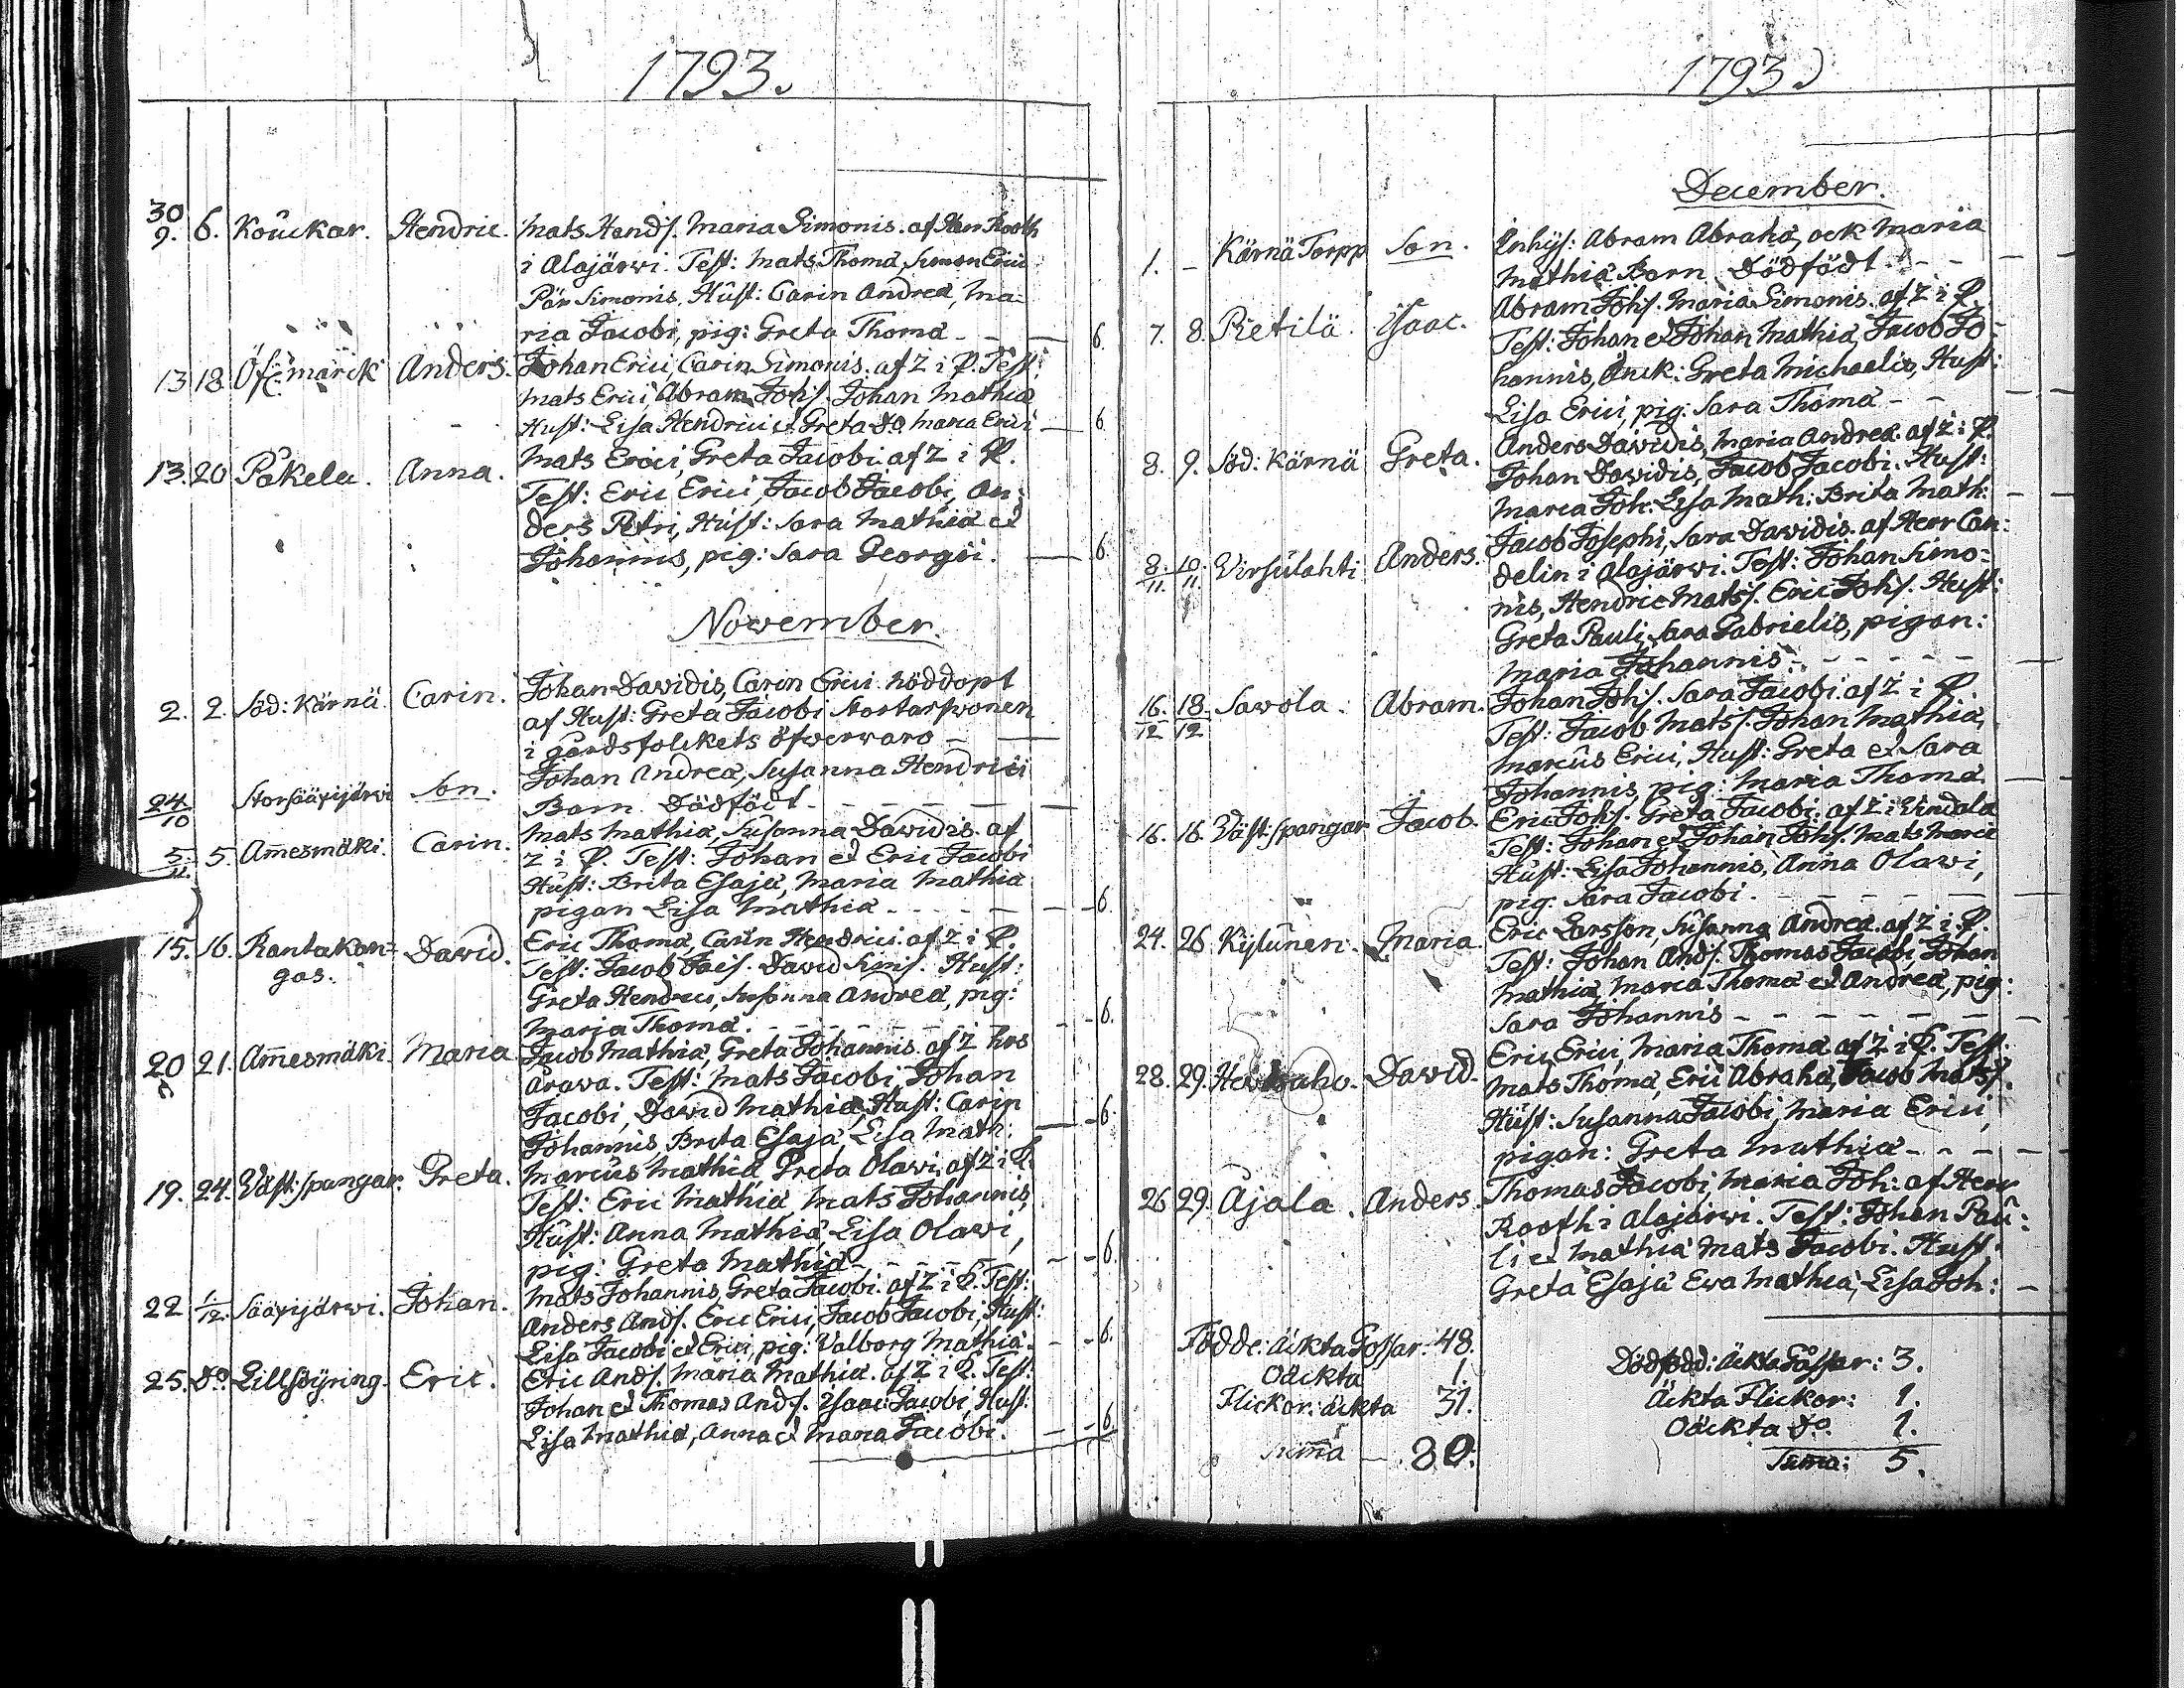 1793.
30
9. 6. Kouckar. Hendric. Mats Hends. Maria Simonis. af Herr Rooth
i Alajärwi. Test: Mats Thomä, Simon Erici
Pär Simonis, Hust: Carin Andreä, Ma-
ria Jacobi, pig: Greta Thomä - - — 6.
13 18. Anders. Johan Erici, Carin Simonis. af Z i P. Test:
Mats Erici, Abram Johs. Johan Mathiä
Hust: Lisa Hendrici et Greta do. Maria Erici — 6.
13. 20 Påkela. Anna. Mats Erici, Greta Jacobi. af Z i P.
Test: Eric Erici, Jacob Jacobi, An-
ders Petri, Hust: Sara Mathiä et
Johannis, pig: Sara Georgii. — 6.
November.
2. 2. Söd: Kärnä. Carin. Johan Davidis, Carin Erici. nöddöpt
af Hust: Greta Jacobi
i gårdsfolckets öfwerwaro — —
24
10 Storsääxijärwi Son. Johan Andreä, Susanna Hendrici
Barn. Dödfödt - - - — —
5
11. 5. Am̄esmäki. Carin. Mats Mathiä, Susanna Davidis. af
Z i P. Test: Johan et Eric Jacobi
Hust: Brita Esajä, Maria Mathiä
pigan Lisa Mathiä - - - — — 6.
15. 16. Rantakan- David. Eric Thomä, Carin Hendrici. af Z i P.
gas. Test: Jacob Jacs. David Sims. Hust:
Greta Hendrici, Susanna Andreä, pig:
Maria Thomä. - - - - - 6.
20 21. Am̄esmäki. Maria Jacob Mathiä, Greta Johannis. af Z hos
Arawa. Test: Mats Jacobi, Johan
Jacobi, David Mathiä, Hust: Carin
Johannis, Brita Esajä, Lisa Math: — 6.
19. 24. Väst: spangar. Greta. Marcus Mathiä, Greta Olawi. af Z i P.
Test: Eric Mathiä, Mats Johannis,
Hust: Anna Mathiä, Lisa Olawi,
pig: Greta Mathiä - - - - 6.
22 1/12. Sääxijärwi. Johan. Mats Johannis, Greta Jacobi. af Z i P. Test:
Anders Ands. Eric Erici, Jacob Jacobi, Hust:
Lisa Jacobi et Erici, pig: Valborg Mathiä. - 6.
25. do. Lillsöyring. Eric. Eric Ands. Maria Mathiä. af Z i P. Test:
Johan et Thomas Ands. Isaac Jacobi, Hust:
Lisa Mathiä, Anna et Maria Jacobi. — 6.
1793
December.
1. - Kärnä Torpp Son. Inhys: Abram Abrahä, ock Maria
Mathiä Barn. Dödfödt. - - -
7. 8. Pietilä. Isaac. Abram Johs. Maria Simonis. af Z i P.
Test: Johan et Johan Mathiä, Jacob Jo-
hannis, Enck: Greta Michaelis, Hust:
Lisa Erici, pig: Sara Thomä - - - -
8. 9. Söd: Kärnä Greta. Anders Davidis, Maria Andreä. af Z i P.
Johan Davidis, Jacob Jacobi. Hust:
Maria Joh: Lisa Math: Brita Math: - -
8. 10.
11. 11 Virsulahti Anders. Jacob Josephi, Sara Davidis. af Herr Can-
delin i Alajärwi. Test: Johan Simo-
nis, Hendric Mats. Eric Johs. Hust:
Greta Pauli, Sara Gabrielis, pigan:
Maria Johannis. - - - - -
16. 18.
12 12 Sawola. Abram. Johan Johs. Sara Jacobi. af Z i P.
Test: Jacob Mats. Johan Mathiä,
Marcus Erici, Hust: Greta et Sara
Johannis, pig: Maria Thomä. - -
16. 16. Väst: spangar Jacob. Eric Johs. Greta Jacobi. af Z i Vindala
Test: Johan et Johan Johs. Mats
Hust: Lisa Johannis, Anna Olawi,
pig: Sara Jacobi. - - - - -
24. 26 Kylunen. Maria. Eric Larsson, Susanna Andreä. af Z i P.
Test: Johan Ands. Thomas Jacobi, Johan
Mathiä, Maria Thomä et Andreä, pig:
Sara Johannis - - - - - -
28. 29. David. Eric Erici, Maria Thomä. af Z i P. Test:
Mats Thomä, Eric Abrahä, Jacob Mats.
Hust: Susanna Jacobi, Maria Erici,
pigan: Greta Mathiä - - - -
26 29. Ajala. Anders. Thomas Jacobi, Maria Joh: af Herr
Rooth i Alajärwi. Test: Johan Pau-
li et Mathiä Mats Jacobi. Hust:
Greta Esajä Ewa Mathiä, Lisa Joh: -
Födde: Äckta Gossar: 48.
Oäckta 1.
Flickor: äckta 31.
Sum̄a — 80.
Dödfödd: Äckta Gåssar: 3.
Äckta Flickor: 1.
Oäckta do. 1.
Sum̄a: 5.